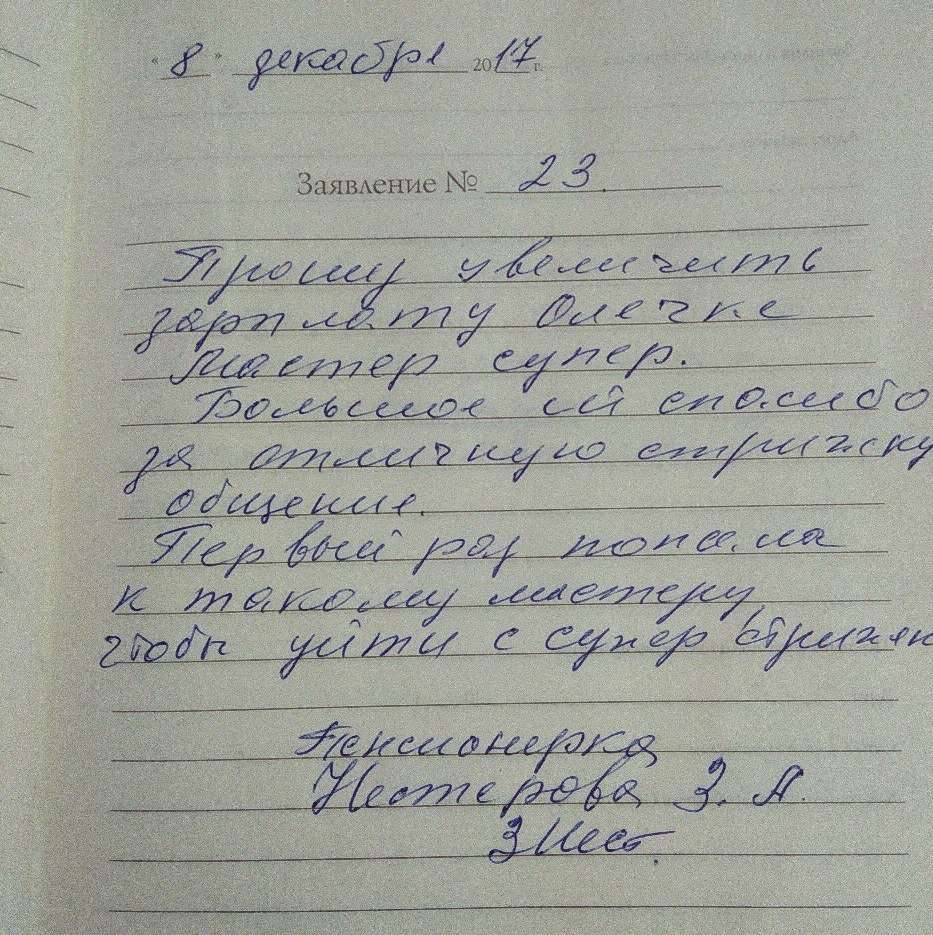 "8" декабря 2017 г.
Заявление № 23.
Прошу увеличить
зарплату Олечке
мастер супер.
Большое ей спасибо
за отличную стрижку
общение.
Первый раз попала
к такому мастеру
чтобы уйти с супер стрижк
Пенсионерка
Нестерова З. А.
ЗНест.